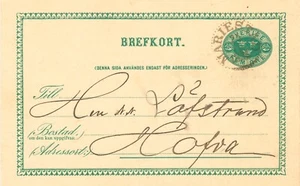 BREFKORT.
(DENNA SIDA ANVÄNDES ENDAST FÖR ADRESSERINGEN.)
MARIES
Till
Löfstrand
(Bostad)
(om den kan uppgifvas.)
(Adressort:)
Hofva